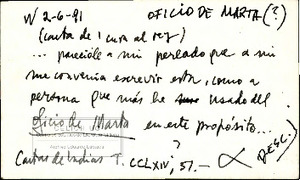 N 2-6-91 OFICIO DE MARTA (?)
(carta de 1 cura al rey)
... parecióle a mi perlado que a mi
me convenía escrevir esta, como a
persona que más he usado del
oficio de Marta en este propósito...
?
Cartas de Indias T. CCLXIV, 51.—
DESC.)